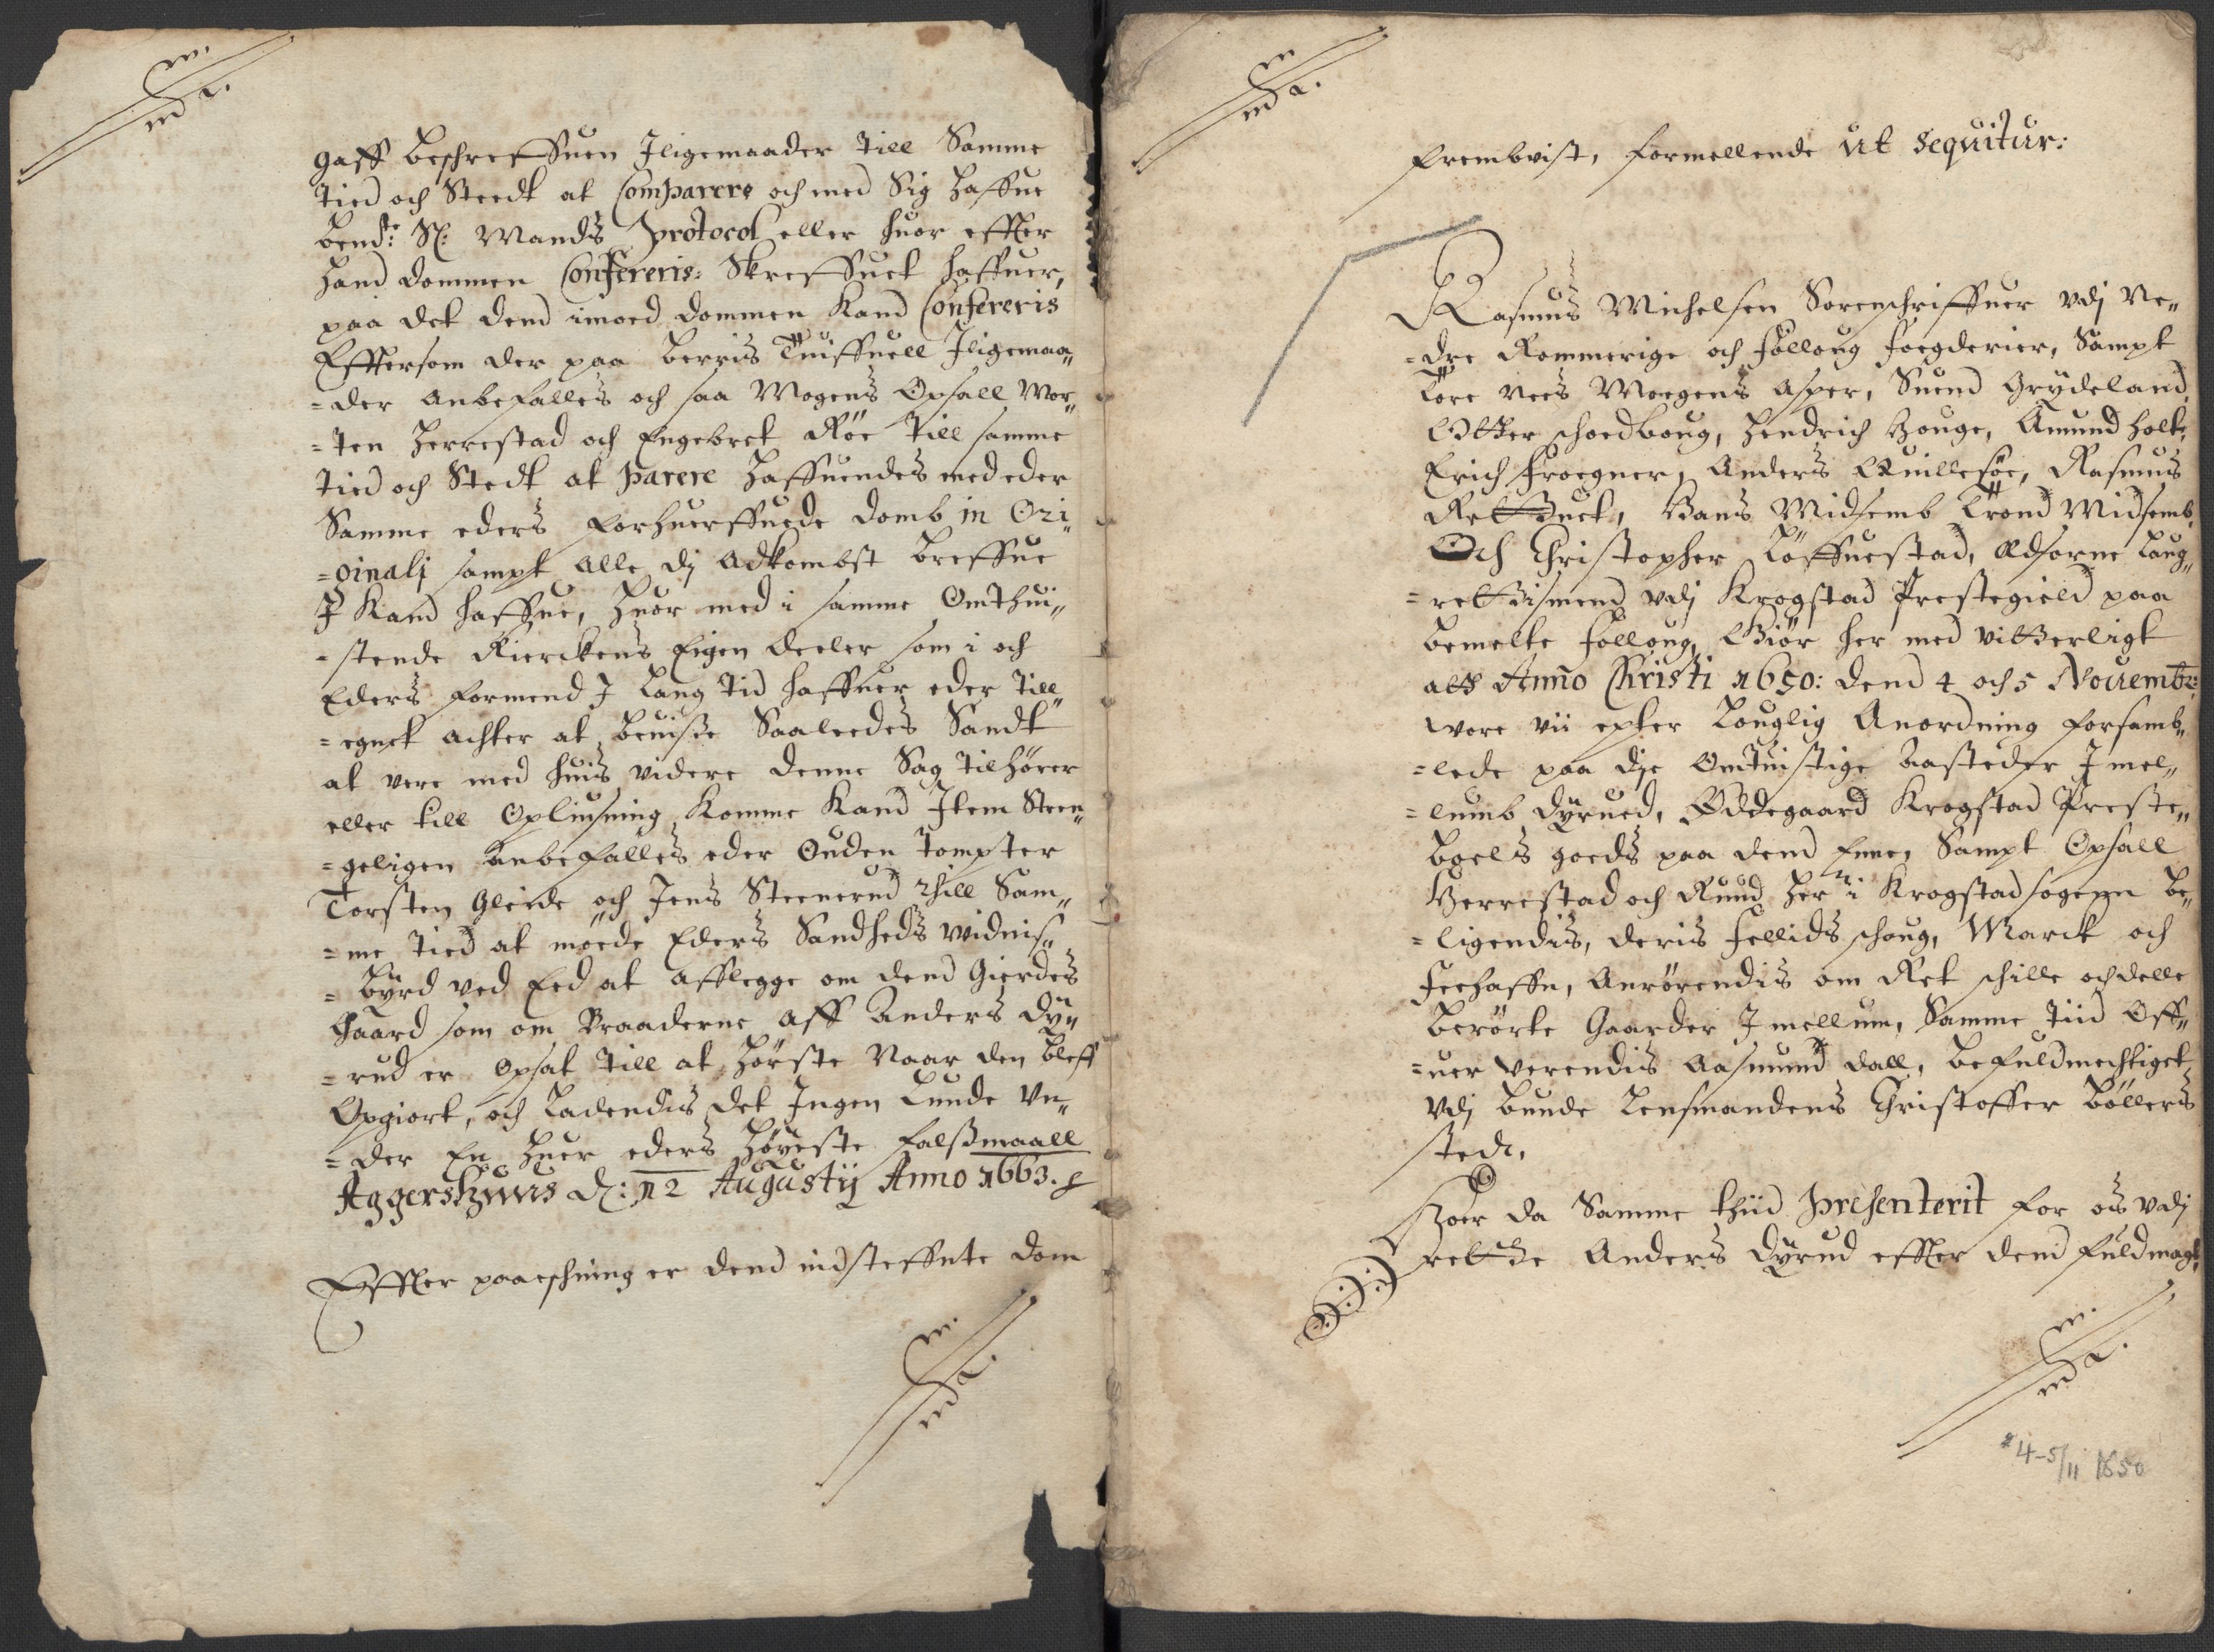 m.
md a.
gaff beschreffuen Iligemaader till Samme
tied och Steedt at Comparere och med Sig haffue
bend:te Sl: Mands protocol eller huor effter
hand dommen Confereris: Skreffuet haffuer,
paa det dend imoed dommen Kand Confereris
Efftersom der paa berris Tuiffuell Iligemaa„
=der anbefalles och saa Mogens Opsall Mor„
=ten Herrestad och Engebret Røe till samme
tied och Stedt at parere haffuendes med eder
Samme eders forhuerffuede domb in Ori„
=ginalj sampt alle dj adkombst breffue
I Kand haffue, huor med i samme Omthui„
=stende Kierckens Eigen deeler som i och
Eders formend I lang tid haffuer eder till„
=egnet achter at beuisse Saaleedes Sandt
at vere med huis videre denne Sag tilhører
eller till Opliusning Komme Kand Item Steen„
=geligen anbefalles eder Ouden tompter
Torsten Gleide och Jens Steenerud thill Sam„
=me tied at møede Eders Sandheds widnis„
=byrd ved Eed at afflegge om dend Gierdes
Gaard som om Braaderne aff Anders Dy„
=rud er opsat till at hørste Naar den bleff
Opgiort, och ladendis det Ingen Lunde Vn„
=der En huer eders høyeste falsmaall
Aggershuus d: 12 Augustij Anno 1663.
Effter paaeschning er dend indsteffnte dom
m.
md a.
m.
md a.
frembvist, formellende ut sequitur:
Rasmus Michelsen Sorenschriffuer vdj Ne„
=dre Rommerige och follong foegderier, Sampt
Tore Nees Moegens Asper, Suend Grydeland
Otter schoedboug, Hendrich Houge, Amund holt,
Erich froegner, Anders Quillesøe, Rasmus
Hans Midsemb Trond Midsemb,
Och Christopher Løffuestad, Edsorne laug„
=rettismend vdj Krogstad Prestegield paa
bemelte follong, Giør her med vitterligt
att Anno Christi 1650: dend 4 och 5 Nouembr:
wore vii epter louglig Anordning forsamb„
=lede paa dje Omtuistige aasteder I mel„
=lumb Dyrued, Øddegaard Krogstad Preste„
boels goeds paa dend Enne, Sampt Opsall
Herrestad och Ruud her i Krogstad sogenn be„
=ligendis, deris fellids schoug, Marck och
feehaffn, Anrørendis om Ret schille och delle
berørte Gaarder I mellum, Samme tiid Off„
=uer verendis Aasmund dall, befuldmechtiget
vdj bunde Lensmandens Christoffer Bøllers
sted,
Hoer da Samme thiid presenterit for os vdj
rette Anders Dyrud effter dend fuldmagt,
m.
md a.
4-5/11 1650